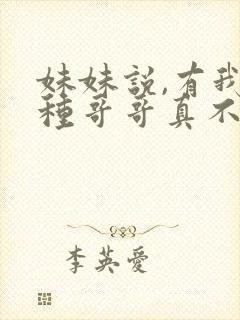 妹妹説,有我
種哥哥真不
李英愛